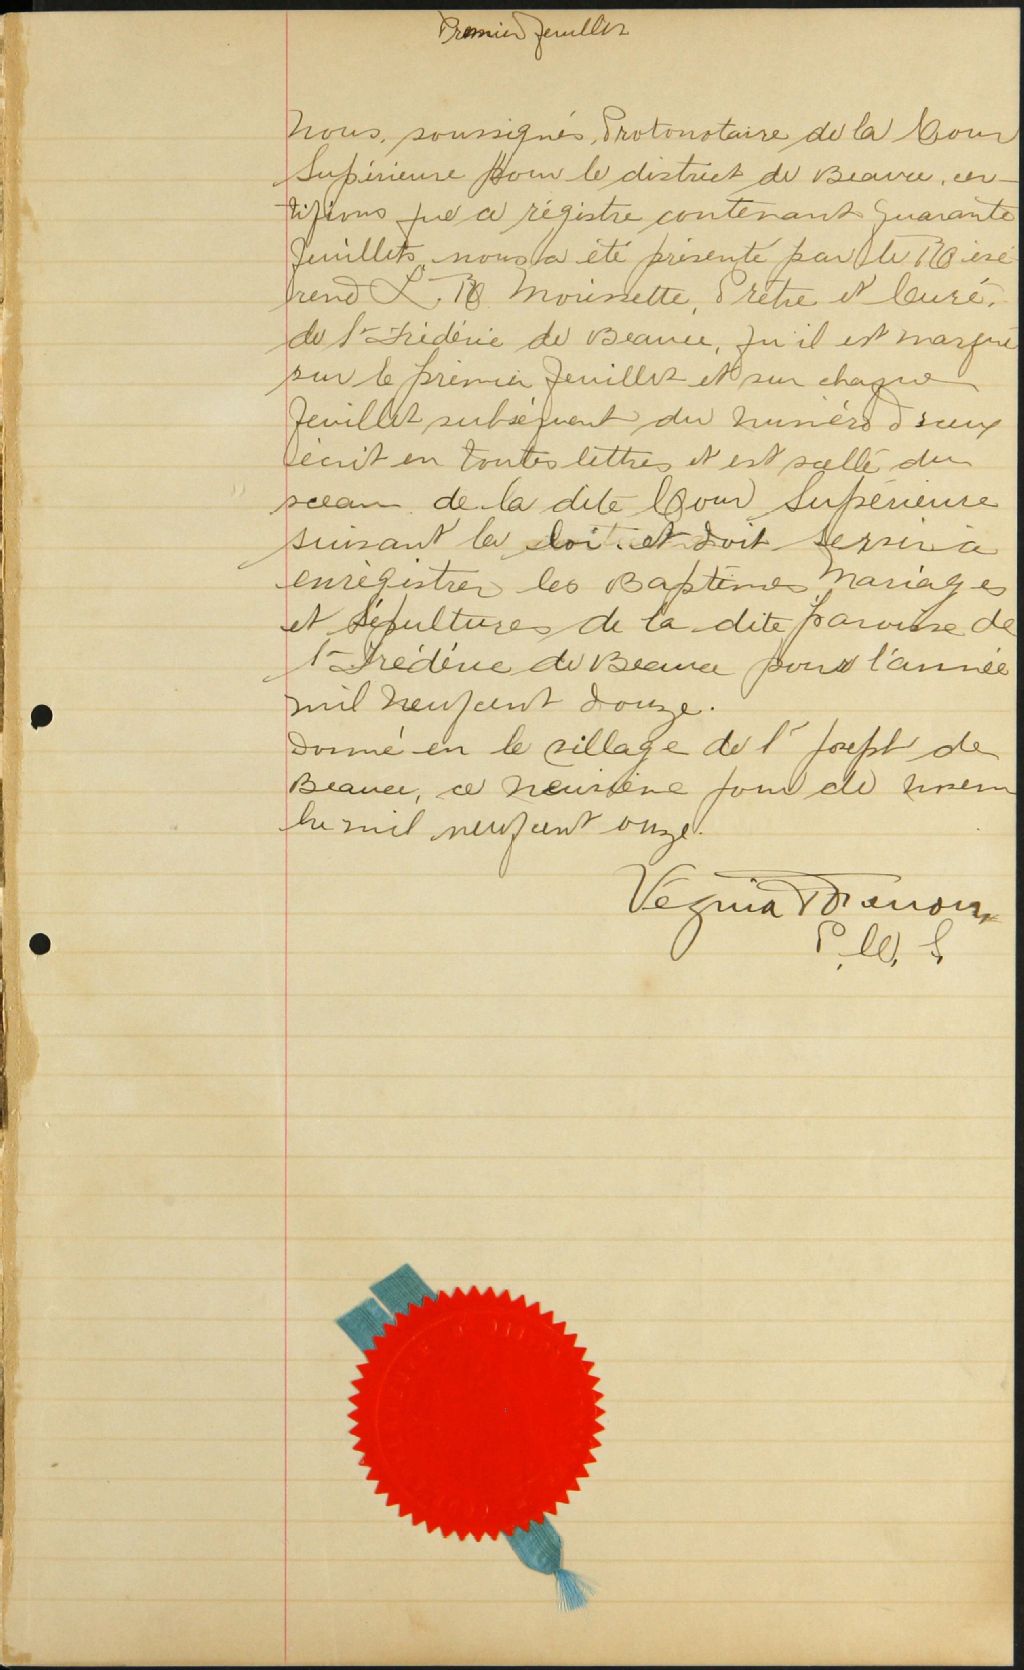 Premier feuillet
Nous, soussignés, Protonotaire de la Cour
Supérieure pour le district de Beauce, cer-
tifions que ce régistre contenant quarante
feuillets, nous a été présenté par le Révé
rend L. R. Morissette, Prêtre et Curé,
de St Frédéric de Beauce, qu'il est marqué
sur le premier feuillet et sur chaque
feuillet subséquent du numéro d'iceux
écrit en toutes lettres et est scellé du
sceau de la dite Cour Supérieure
suivant la loi et doit servir à
enrégistrer les Baptêmes Mariages
et Sépultures de la dite paroisse de
St Frédéric de Beauce pour l'année
mil neuf cent douze.
Donné en le village de St Joseph de
Beauce, ce neuvième jour de novem
bre mil neuf cent onze.
Vézina
P. C. S.